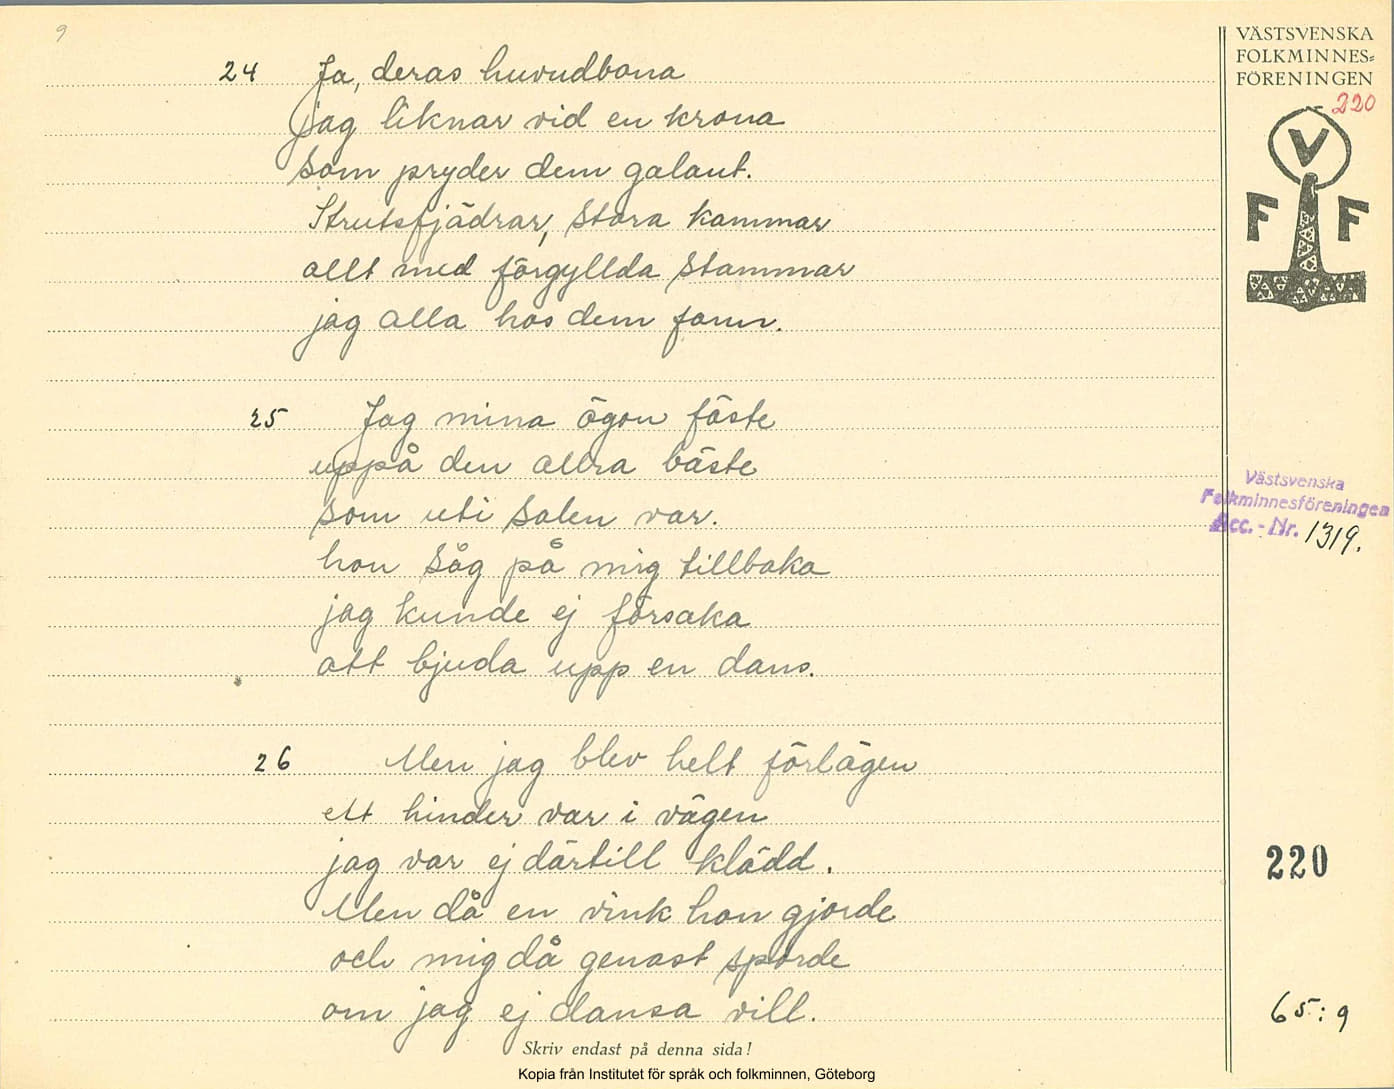 9
24 Ja, deras huvudbona
jag liknar vid en krona
som pryder dem galant.
Strutsfjädrar, stora kammar
allt med förgyllda stammar
jag alla hos dem fann.
25 Jag mina ögon fäste
uppå den allra bäste
som uti salen var.
hon såg på mig tillbaka
jag kunde ej försaka
att bjuda upp en dans.
26 Men jag blev helt förlägen
ett hinder var i vägen
jag var ej därtill klädd.
Men då en vink hon gjorde
och mig då genast sporde
om jag ej dansa vill.
Skriv endast på denna sida!
Kopia från Institutet för språk och folkminnen, Göteborg
VÄSTSVENSKA
FOLKMINNES=
FÖRENINGEN
220
V
F F
Västsvenska
Folkminnesföreningen
Acc. - Nr. 1319.
220
65:9